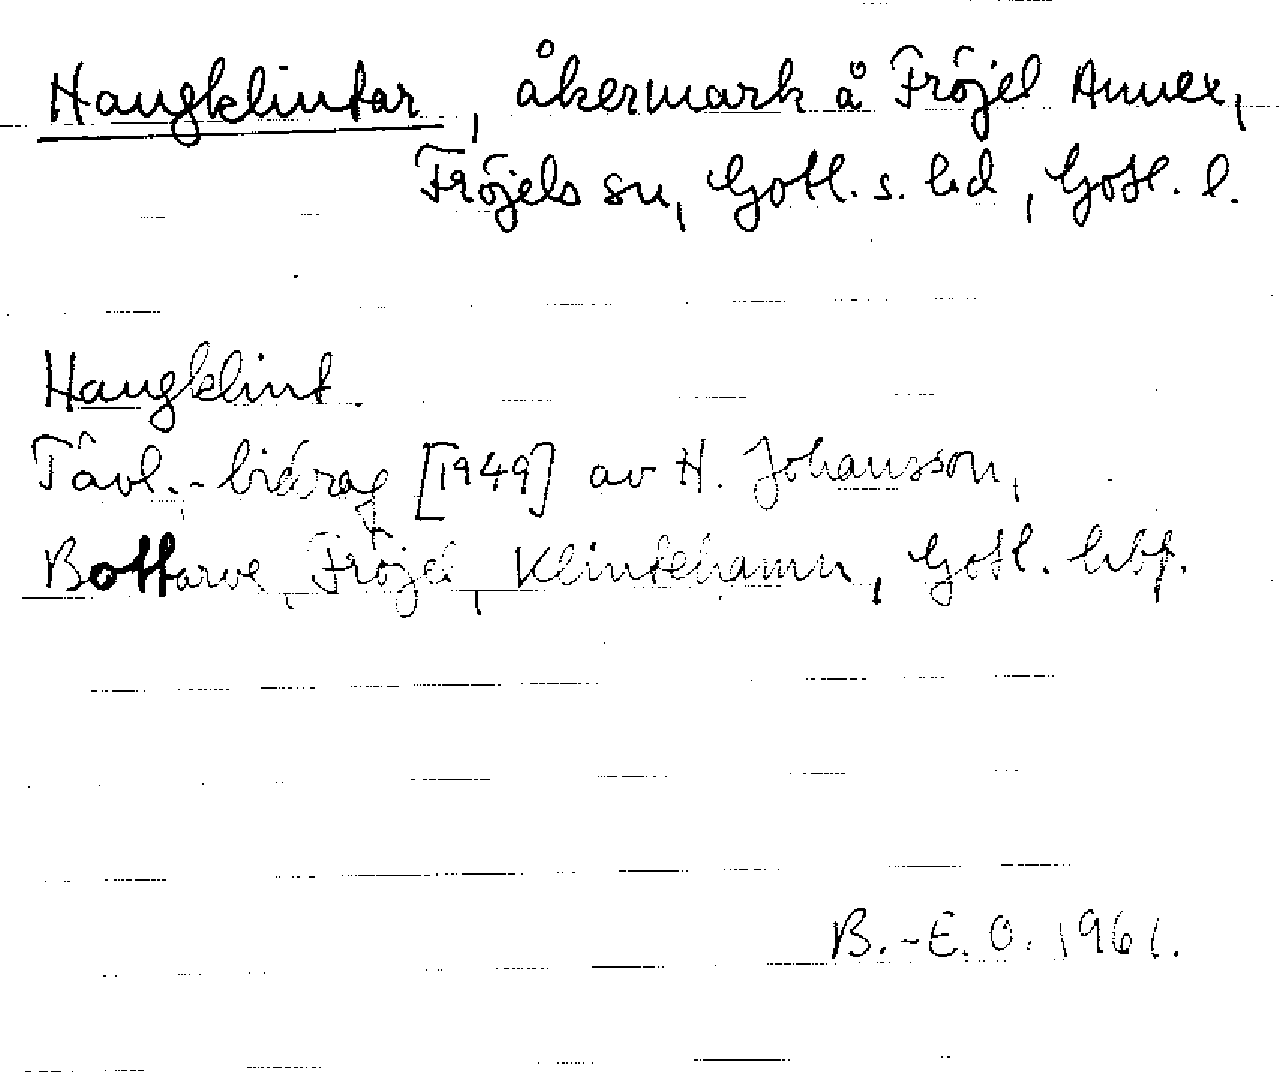 Haugklintar, åkermark å Fröjel Annex,
Fröjels sn, Gotl. s. hd, Gotl. l.
Haugklint.
Tävl.-bidrag [1949] av H. Johansson,
Bottarve, Fröjel, Klintehamn, Gotl. hbf.
B.-E. O. 1961.